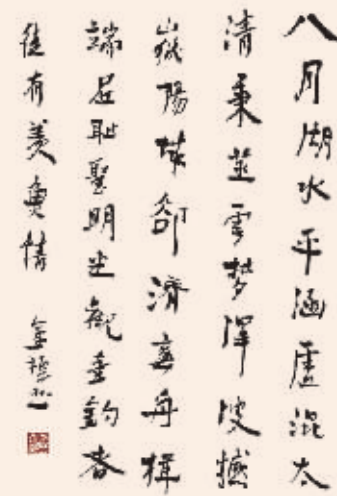 八月湖水平涵虛混太
清氣蒸雲梦澤波撼
嶽陽城欲濟無舟楫
端居耻聖明坐觀垂釣者
徒有羡魚情